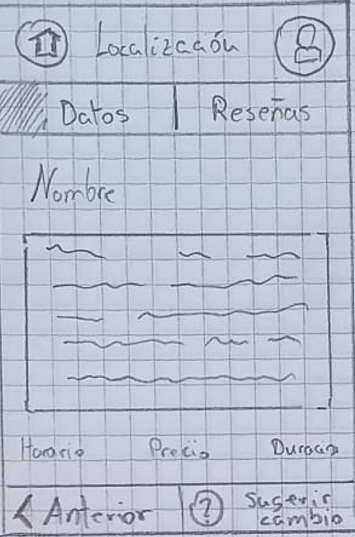 Localización
Datos | Reseñas
Nombre
Horario Precio Duració
< Anterior ? Sugerir
cambio